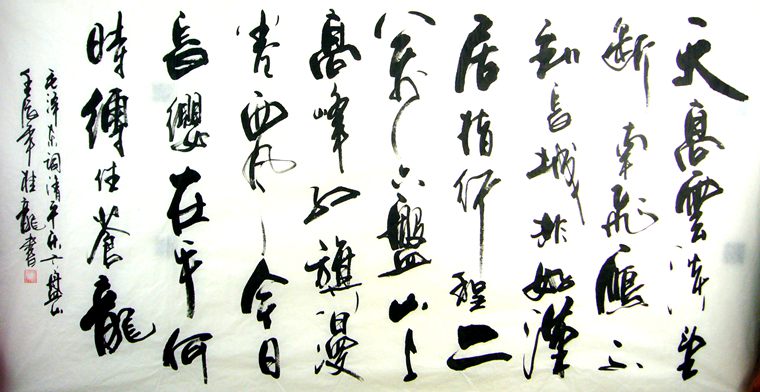 天高雲淡望
断南飛雁不
到長城非好漢
屈指行程二
萬六盤山上
高峰红旗漫
卷西风今日
長纓在手何
時縛住蒼龍
毛泽东词清平乐六盘山
壬辰年桂龍書